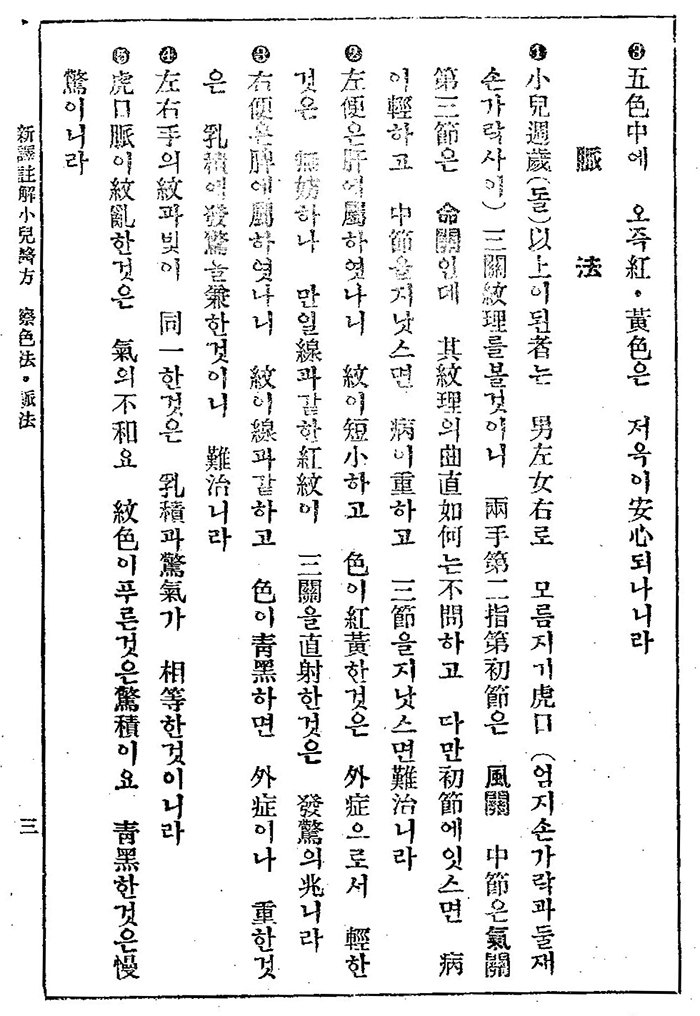 ❸五色中에 오즉紅·黃色은 저윽이安心되나니라
脈法
❶小兒週歲(돌)以上이된者는 男左女右로 모름지기虎口(엄지손가락과둘재
손가락사이)三關紋理를볼것이니 兩手第二指第初節은 風關 中節은氣關
第三節은 命關인데 其紋理의曲直如何는不問하고 다만初節에잇스면 病
이輕하고 中節을지낫스면 病이重하고 三節을지낫스면難治니라
❷左便은肝에屬하엿나니 紋이短小하고 色이紅黃한것은 外症으로서 輕한
것은 無妨하나 만일線과같한紅紋이 三關을直射한것은 發驚의兆니라
❸右便은脾에屬하엿나니 紋이線과같하고 色이靑黑하면 外症이나 重한것
은 乳積에發驚을兼한것이니 難治니라
❹左右手의紋과빛이 同一한것은 乳積과驚氣가 相等한것이니라
❺虎口脈이紋亂한것은 氣의不和요 紋色이푸른것은驚積이요 靑黑한것은慢
驚이니라
新譯註解小兒醫方 察色法·脈法
三